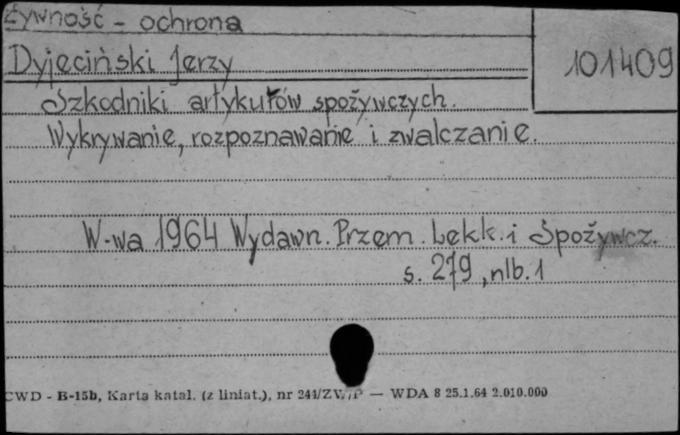 Żywność - ochrona
101409
Dyjęciński Jerzy
Szkodniki artykułów spożywczych.
Wykrywanie, rozpoznawanie i zwalczanie.
W-wa 1964 Wydawn. Przem. Lekk. i Spożywcz.
s. 279, nlb. 1
CWD - B-15b, Karta katal. (z liniat.), nr 241/ZW/P — WDA 8 25.1.64 2.010.000